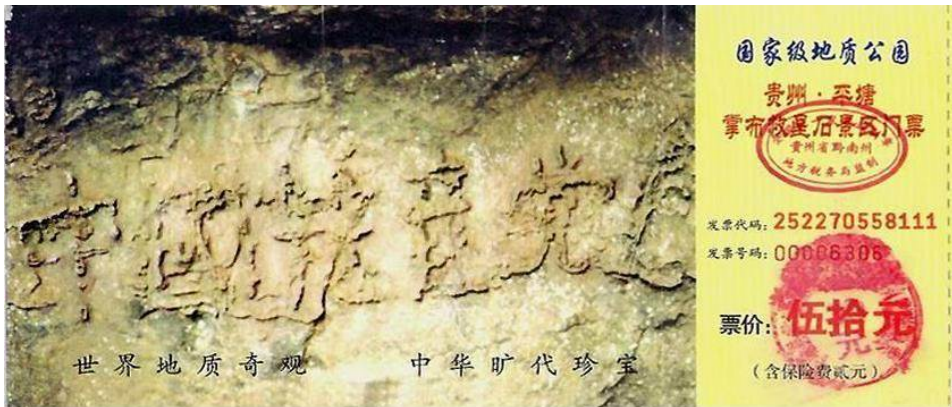 中国共產党亡
世界地质奇观 中华旷代珍宝
国家级地质公园
贵州·平塘
掌布救星石景区门票
贵州省黔南州
地方税务局监制
发票代码: 252270558111
发票号码: 00006306
票价: 伍拾元
(含保险费贰元)